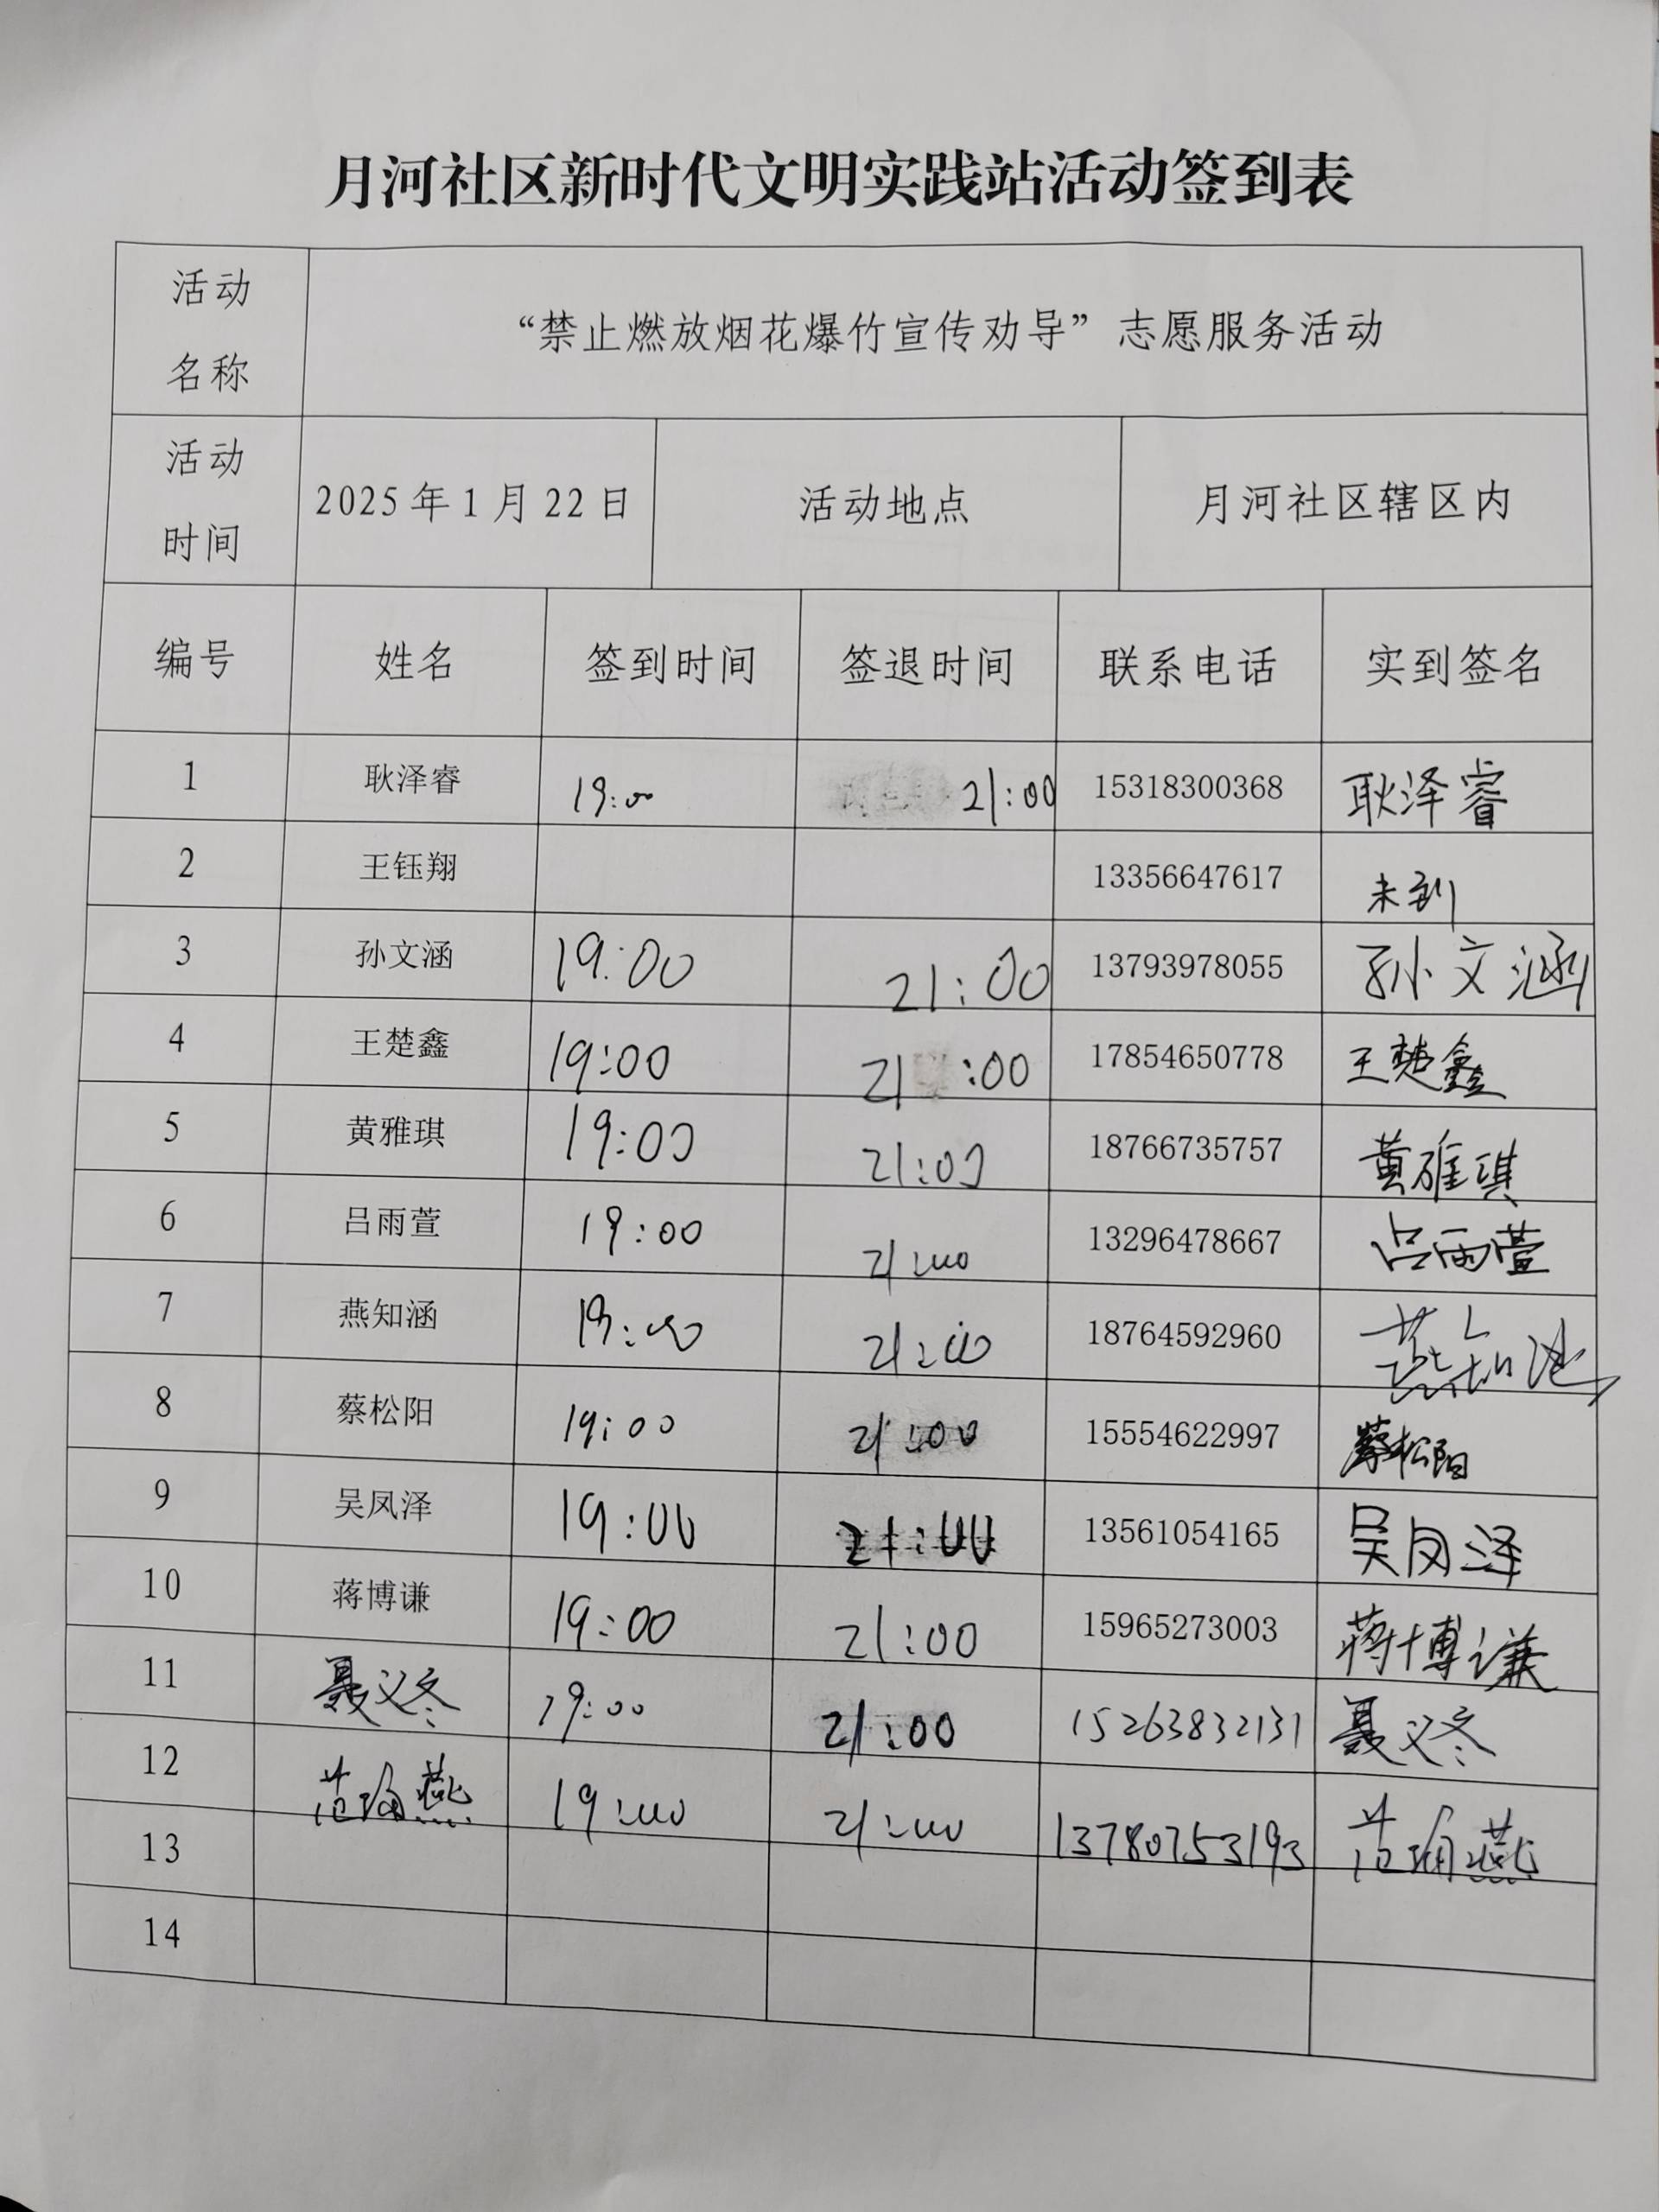 月河社区新时代文明实践站活动签到表
活动名称 “禁止燃放烟花爆竹宣传劝导”志愿服务活动
活动时间 2025年1月22日 活动地点 月河社区辖区内
编号 姓名 签到时间 签退时间 联系电话 实到签名
1 耿泽睿 19:00 21:00 15318300368 耿泽睿
2 王钰翔 13356647617 未到
3 孙文涵 19:00 21:00 13793978055 孙文涵
4 王楚鑫 19:00 21:00 17854650778 王楚鑫
5 黄雅琪 19:00 21:00 18766735757 黄雅琪
6 吕雨萱 19:00 21:00 13296478667 吕雨萱
7 燕知涵 19:00 21:00 18764592960 燕知涵
8 蔡松阳 19:00 21:00 15554622997 蔡松阳
9 吴凤泽 19:00 21:00 13561054165 吴凤泽
10 蒋博谦 19:00 21:00 15965273003 蒋博谦
11 聂义冬 19:00 21:00 15263832131 聂义冬
12 范 燕 19:00 21:00 13780753193 范 燕
13
14